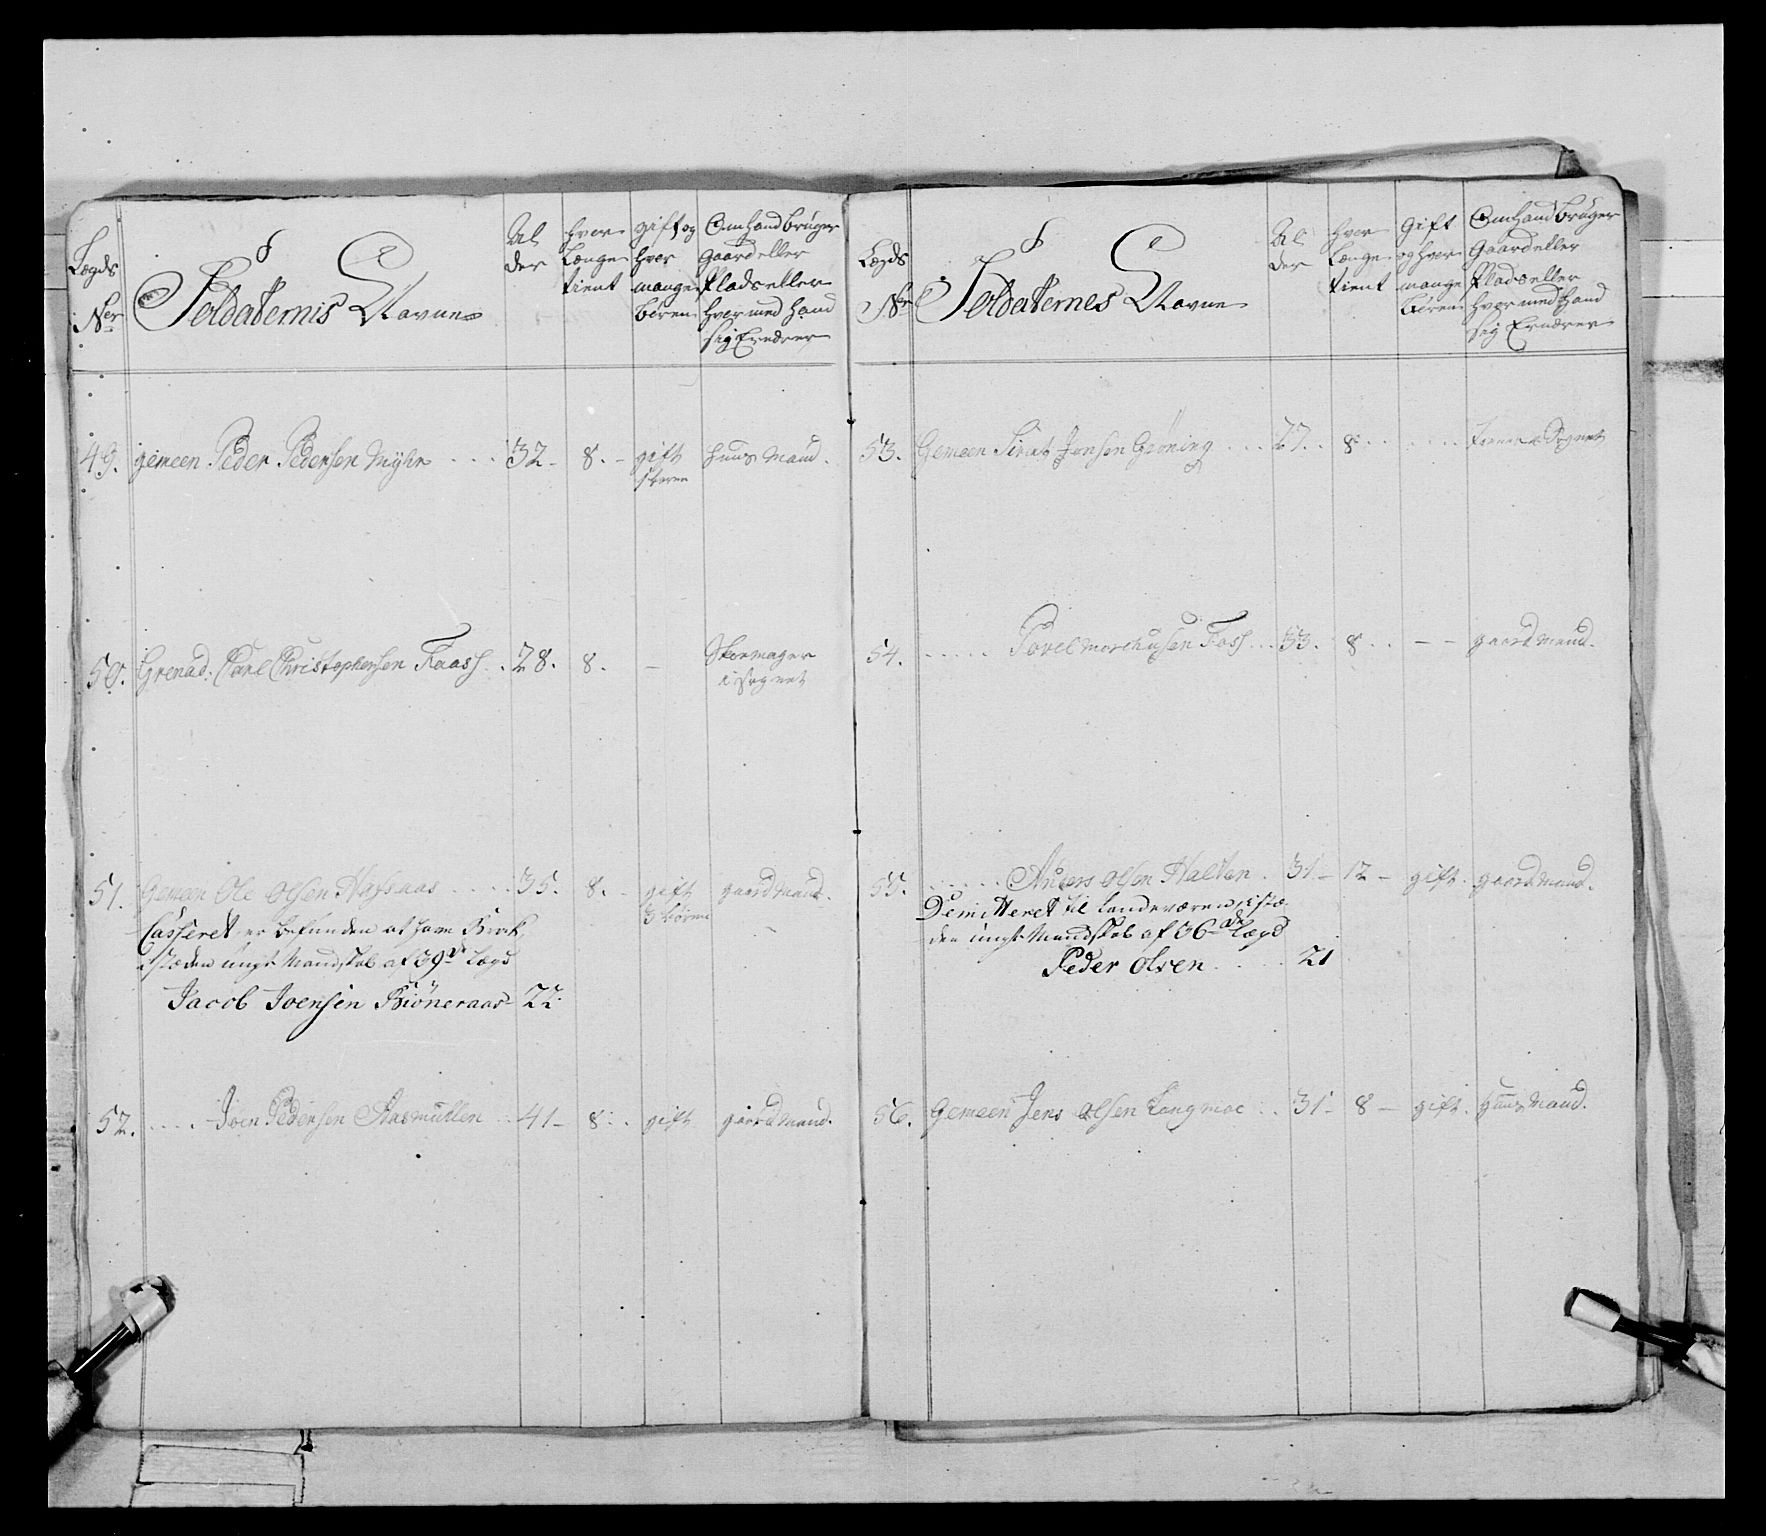 Lægds Ner
Soldaternis Navne
Al der
hvor Længe tient
gift og hvor mange bören
Om hand bruger Gaard eller Plads eller hvor med hand sig Ernærer
49. gemeen Peder Pedersen Myhr 32 8. gift huus Mand.
50. Grenad. Carl Christophersen Faass 28. 8. — Skoemager
i Sognet
51. Gemeen Ole Olsen Hafsaas 35. 8. gift gaard Mand.
3 bören
Casseret er befunden at have Brok,
i stæden ungt Mandskab af 39de Lægd
Jacob Joensen Biöneraas 22
52. Joen Pedersen Aasmullen 41 8. gift gaard Mand.
Lægds Ner
Soldaternes Navne
Al der
hvor Længe tient
Gift og hvor mange bören
Om hand bruger Gaard eller Plads eller hvor med hand sig Ernærer
53. Gemeen Jonsen Gröning 27. 8. Sognet
54. Povel Morthensen Foss 33. 8. — — gaard Mand.
55. Anders Olsen Halten 31 12 gift. gaard Mand.
Demitteret til Landeværen, i stæ-
den ungt Mandskab af 36de Lægd
Peder Olsen 21
56. Gemeen Jens Olsen Langmoe 31 8 gift. Huus Mand.